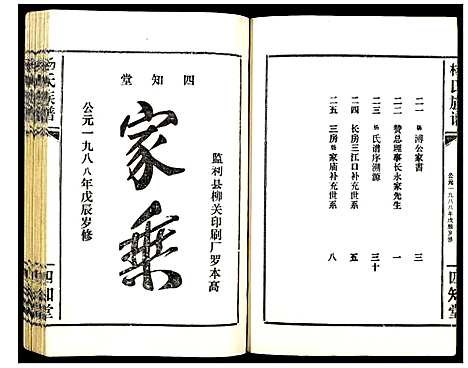 杨氏族谱
四知堂
公元一九八八年戊辰岁修
二一 杨溥公家書 三
二二 赞总理事长永家先生 一
二三 杨氏谱序溯源 三十
二四 长房三江口补充世系 五
二五 三房家庙补充世系 八
监利县柳关印刷厂罗本高
四知堂
家乘
公元一九八八年戊辰岁修
杨氏族谱
四知堂